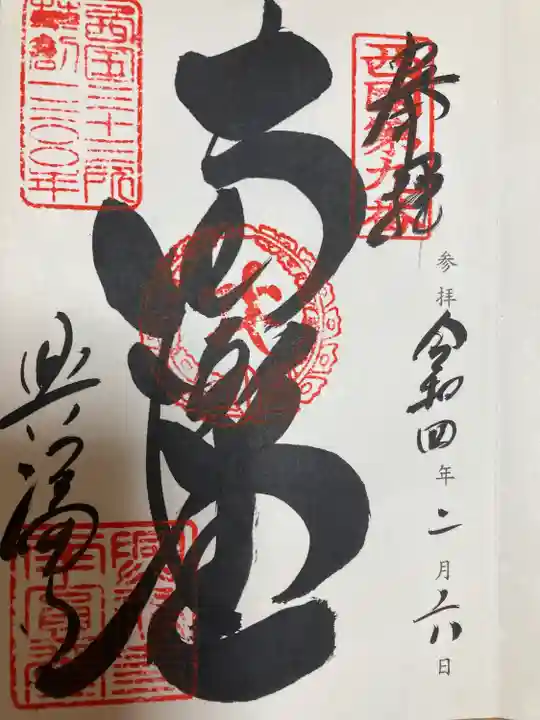 奉拝
西国第九番
参拝 令和四年二月六日
南円堂
西国三十三所
草創一三〇〇年
興福寺
南圓堂